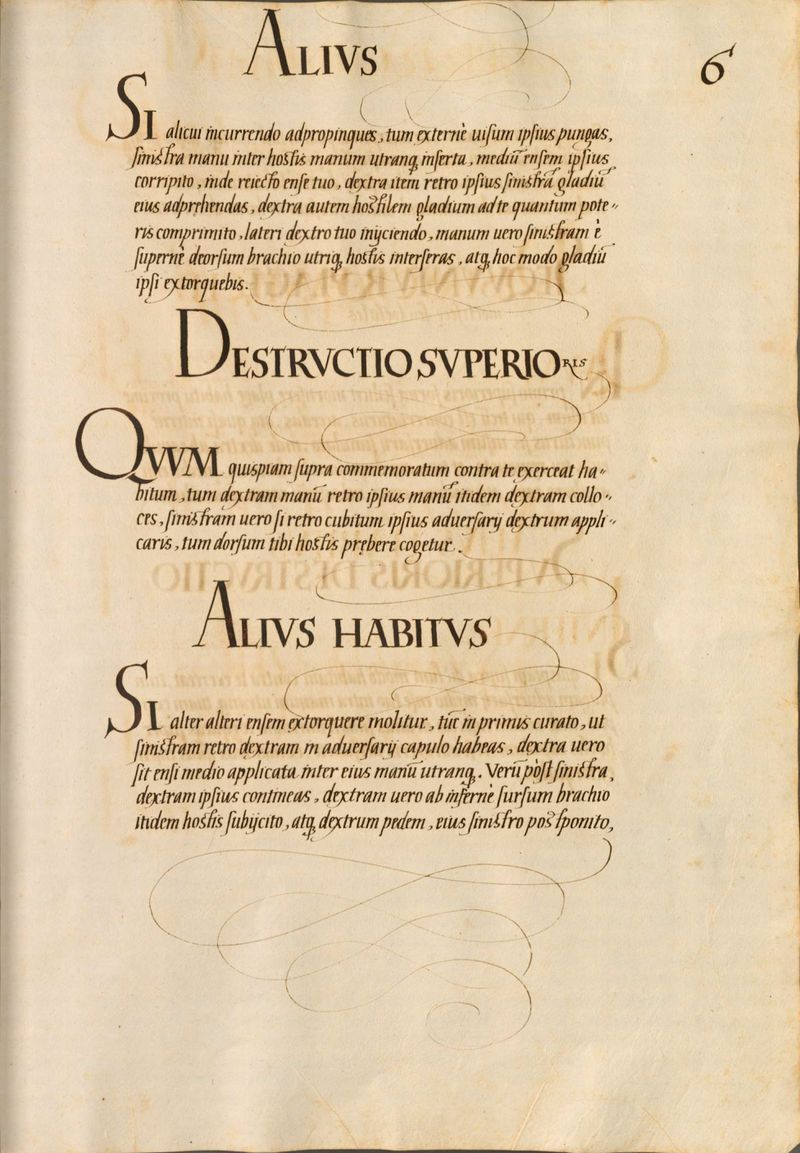 6
ALIVS
SI alicui incurrendo adpropinques, tum externè uisum ipsius pungas,
sinistra manu inter hostis manum utranq, inserta, mediū ensem ipsius
corripito, inde reiecto ense tuo, dextra item retro ipsius sinistrā gladiū
eius adprehendas, dextra autem hostilem gladium ad te quantum pote„
ris comprimito, lateri dextro tuo inijciendo, manum uero sinistram è
supernè deorsum brachio utriq, hostis interseras, atq, hoc modo gladiū
ipsi extorquebis.
DESTRVCTIO SVPERIORIS
QVVM quispiam supra commemoratum contra te exerceat ha„
bitum, tum dextram manū retro ipsius manū itidem dextram collo„
ces, sinistram uero si retro cubitum ipsius aduersarij dextrum appli„
caris, tum dorsum tibi hostis prębere cogetur.
ALIVS HABITVS
SI alter alteri ensem extorquere molitur, tūc in primis curato, ut
sinistram retro dextram in aduersarij capulo habeas, dextra uero
sit ensi medio applicata inter eius manū utranq,. Verū post sinistra,
dextram ipsius contineas, dextram uero ab infernè sursum brachio
itidem hostis subijcito, atq, dextrum pedem, eius sinistro postponito,